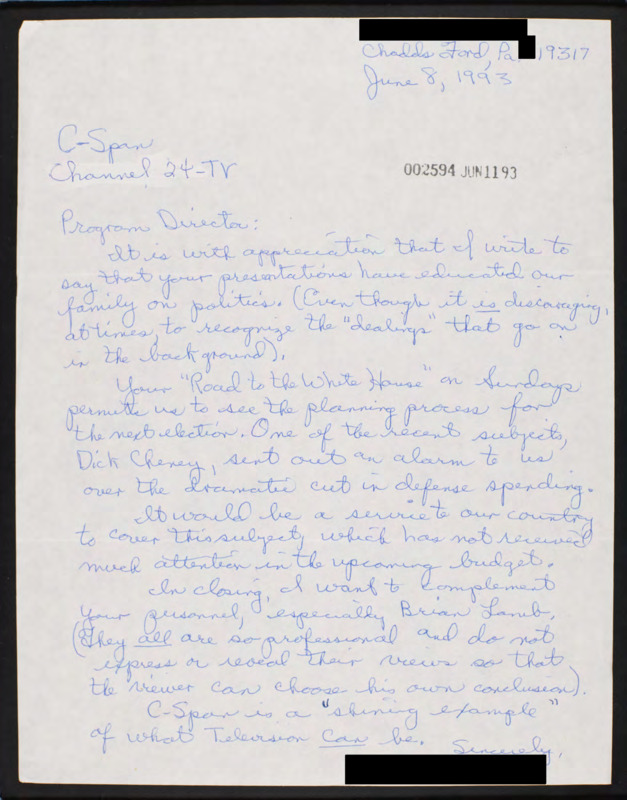 Chadds Ford, Pa 19317
June 8, 1993
C-Span
Channel 24-TV
002594 JUN1193
Program Director:
It is with appreciation that I write to
say that your presentations have educated our
family on politics. (Even though it is discouraging,
at times, to recognize the "dealings" that go on
in the background).
Your "Road to the White House" on Sundays
permits us to see the planning process for
the next election. One of the recent subjects,
Dick Cheney, sent out an alarm to us
over the dramatic cut in defense spending.
It would be a service to our country
to cover this subject, which has not received
much attention in the upcoming budget.
In closing, I want to complement
your personnel, especially Brian Lamb.
(They all are so professional and do not
express or reveal their views so that
the viewer can choose his own conclusion).
C-Span is a "shining example"
of what Television can be. Sincerely,